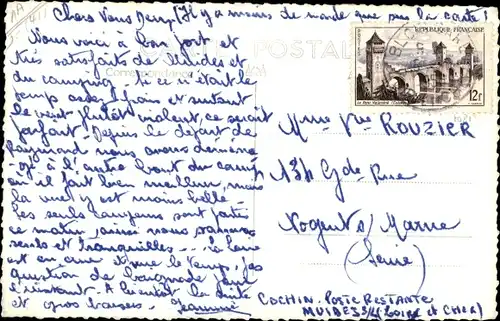 Chers Vous Deux, (Il y a moins de monde que sur la carte !
Nous voici à bon port et
très satisfaits de Muides et
CARTE POSTALE
du camping. Si ce n'était le
Correspondance
temps assez frais et surtout
le vent plutôt violent, ce serait
parfait. Depuis le départ de
Raymond nous avons déménagé
à l'autre bout du camp
où il fait bien meilleur, mais
la vue y est moins belle.
Les seuls campeurs sont partis
ce matin, ainsi nous sommes
seuls et tranquilles --- la Loire
est en crue
question de baignade pour
l'instant. A bientôt la suite
et gros baisers. Jeannine
REPUBLIQUE FRANÇAISE
Le Pont Valentré (Cahors)
12f
Mme Vve ROUZIER
134 Gde Rue
Nogent s/ Marne
(Seine)
COCHIN. POSTE RESTANTE
MUIDES S/ LOIRE (L. et CHER)